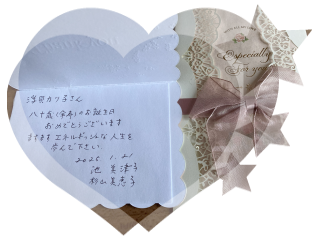 Especially
For you
八十歳(傘寿)のお誕生日
おめでとうございます
ますますエネルギッシュな人生を
歩んで下さい
2025 1. 21
池 美津子
杉山美恵子